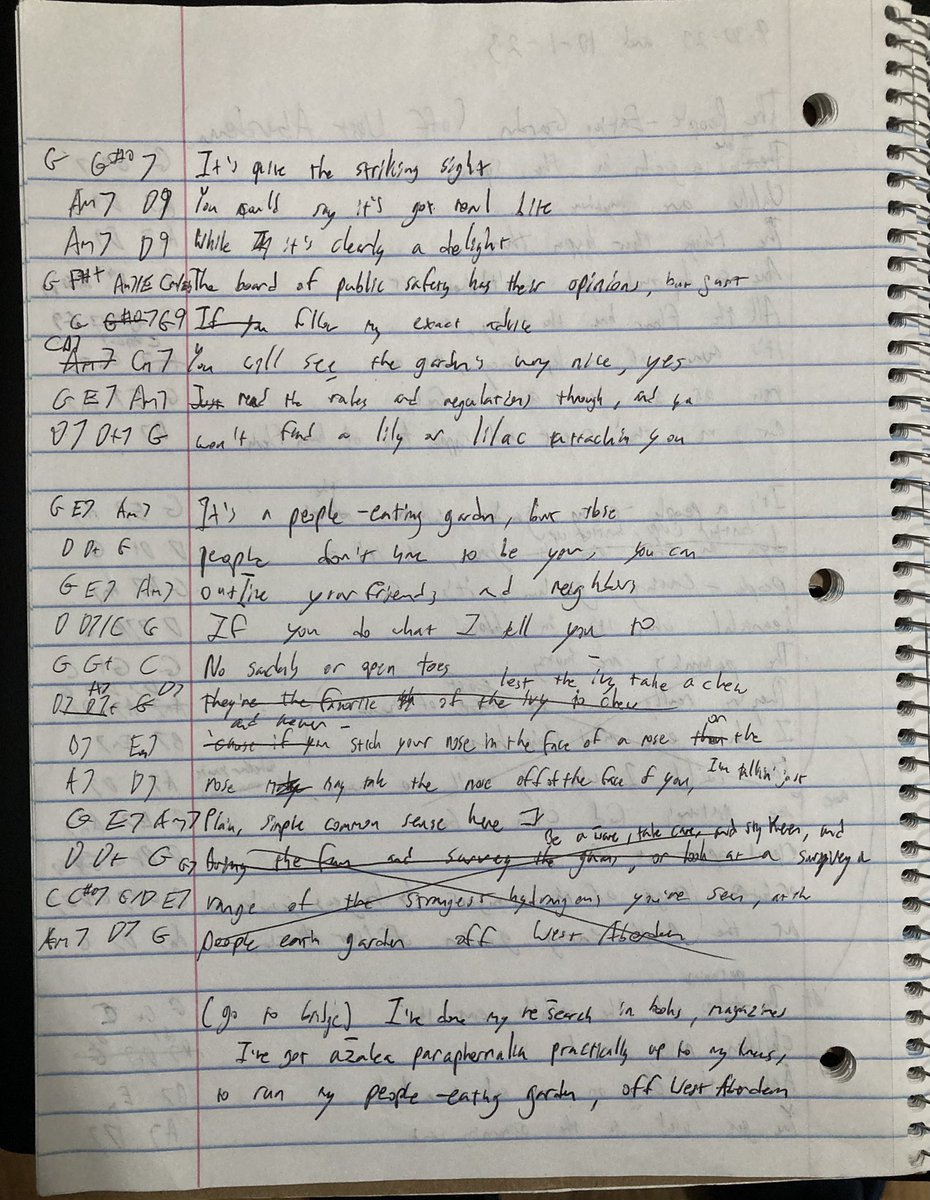 G G#o7 It's quite the striking sight
Am7 D9 You could say it's got real bite
Am7 D9 While it's clearly a delight
G F#+ Am7/E The board of public safety has their opinions, but just
G G#o7 G9 If you follow my exact advice
CA7 Am7 Cm7 You will see the garden's very nice, yes
G E7 Am7 Just read the rules and regulations through, and you
D7 D+7 G won't find a lily or lilac attackin you
G E7 Am7 It's a people-eating garden, but those
D D+ G people don't have to be you, you can
G E7 Am7 outlive your friends and neighbors
D D7/C G If you do what I tell you to
G G+ C No sandals or open toes
lest the ivy take a chew
D7 A7 D7+ G D7 they're the favorite of the ivy to chew
and never
D7 Em7 'cause if you stick your nose in the face of a rose than or the
A7 D7 rose may take the nose off of the face of you, I'm talkin' just
G E7 Am7 Plain, simple common sense here
Be aware, take care, and stay keen, and
D D+ G G7 bring the fam and survey the glam, or look at a surveyin a
C C#o7 G/D E7 range of the strangest hydrangeas you've seen, at the
Am7 D7 G people eatin garden off West Aberdeen
(go to bridge) I've done my research in books, magazines
I've got azalea paraphernalia practically up to my knees,
to run my people-eating garden, off West Aberdeen